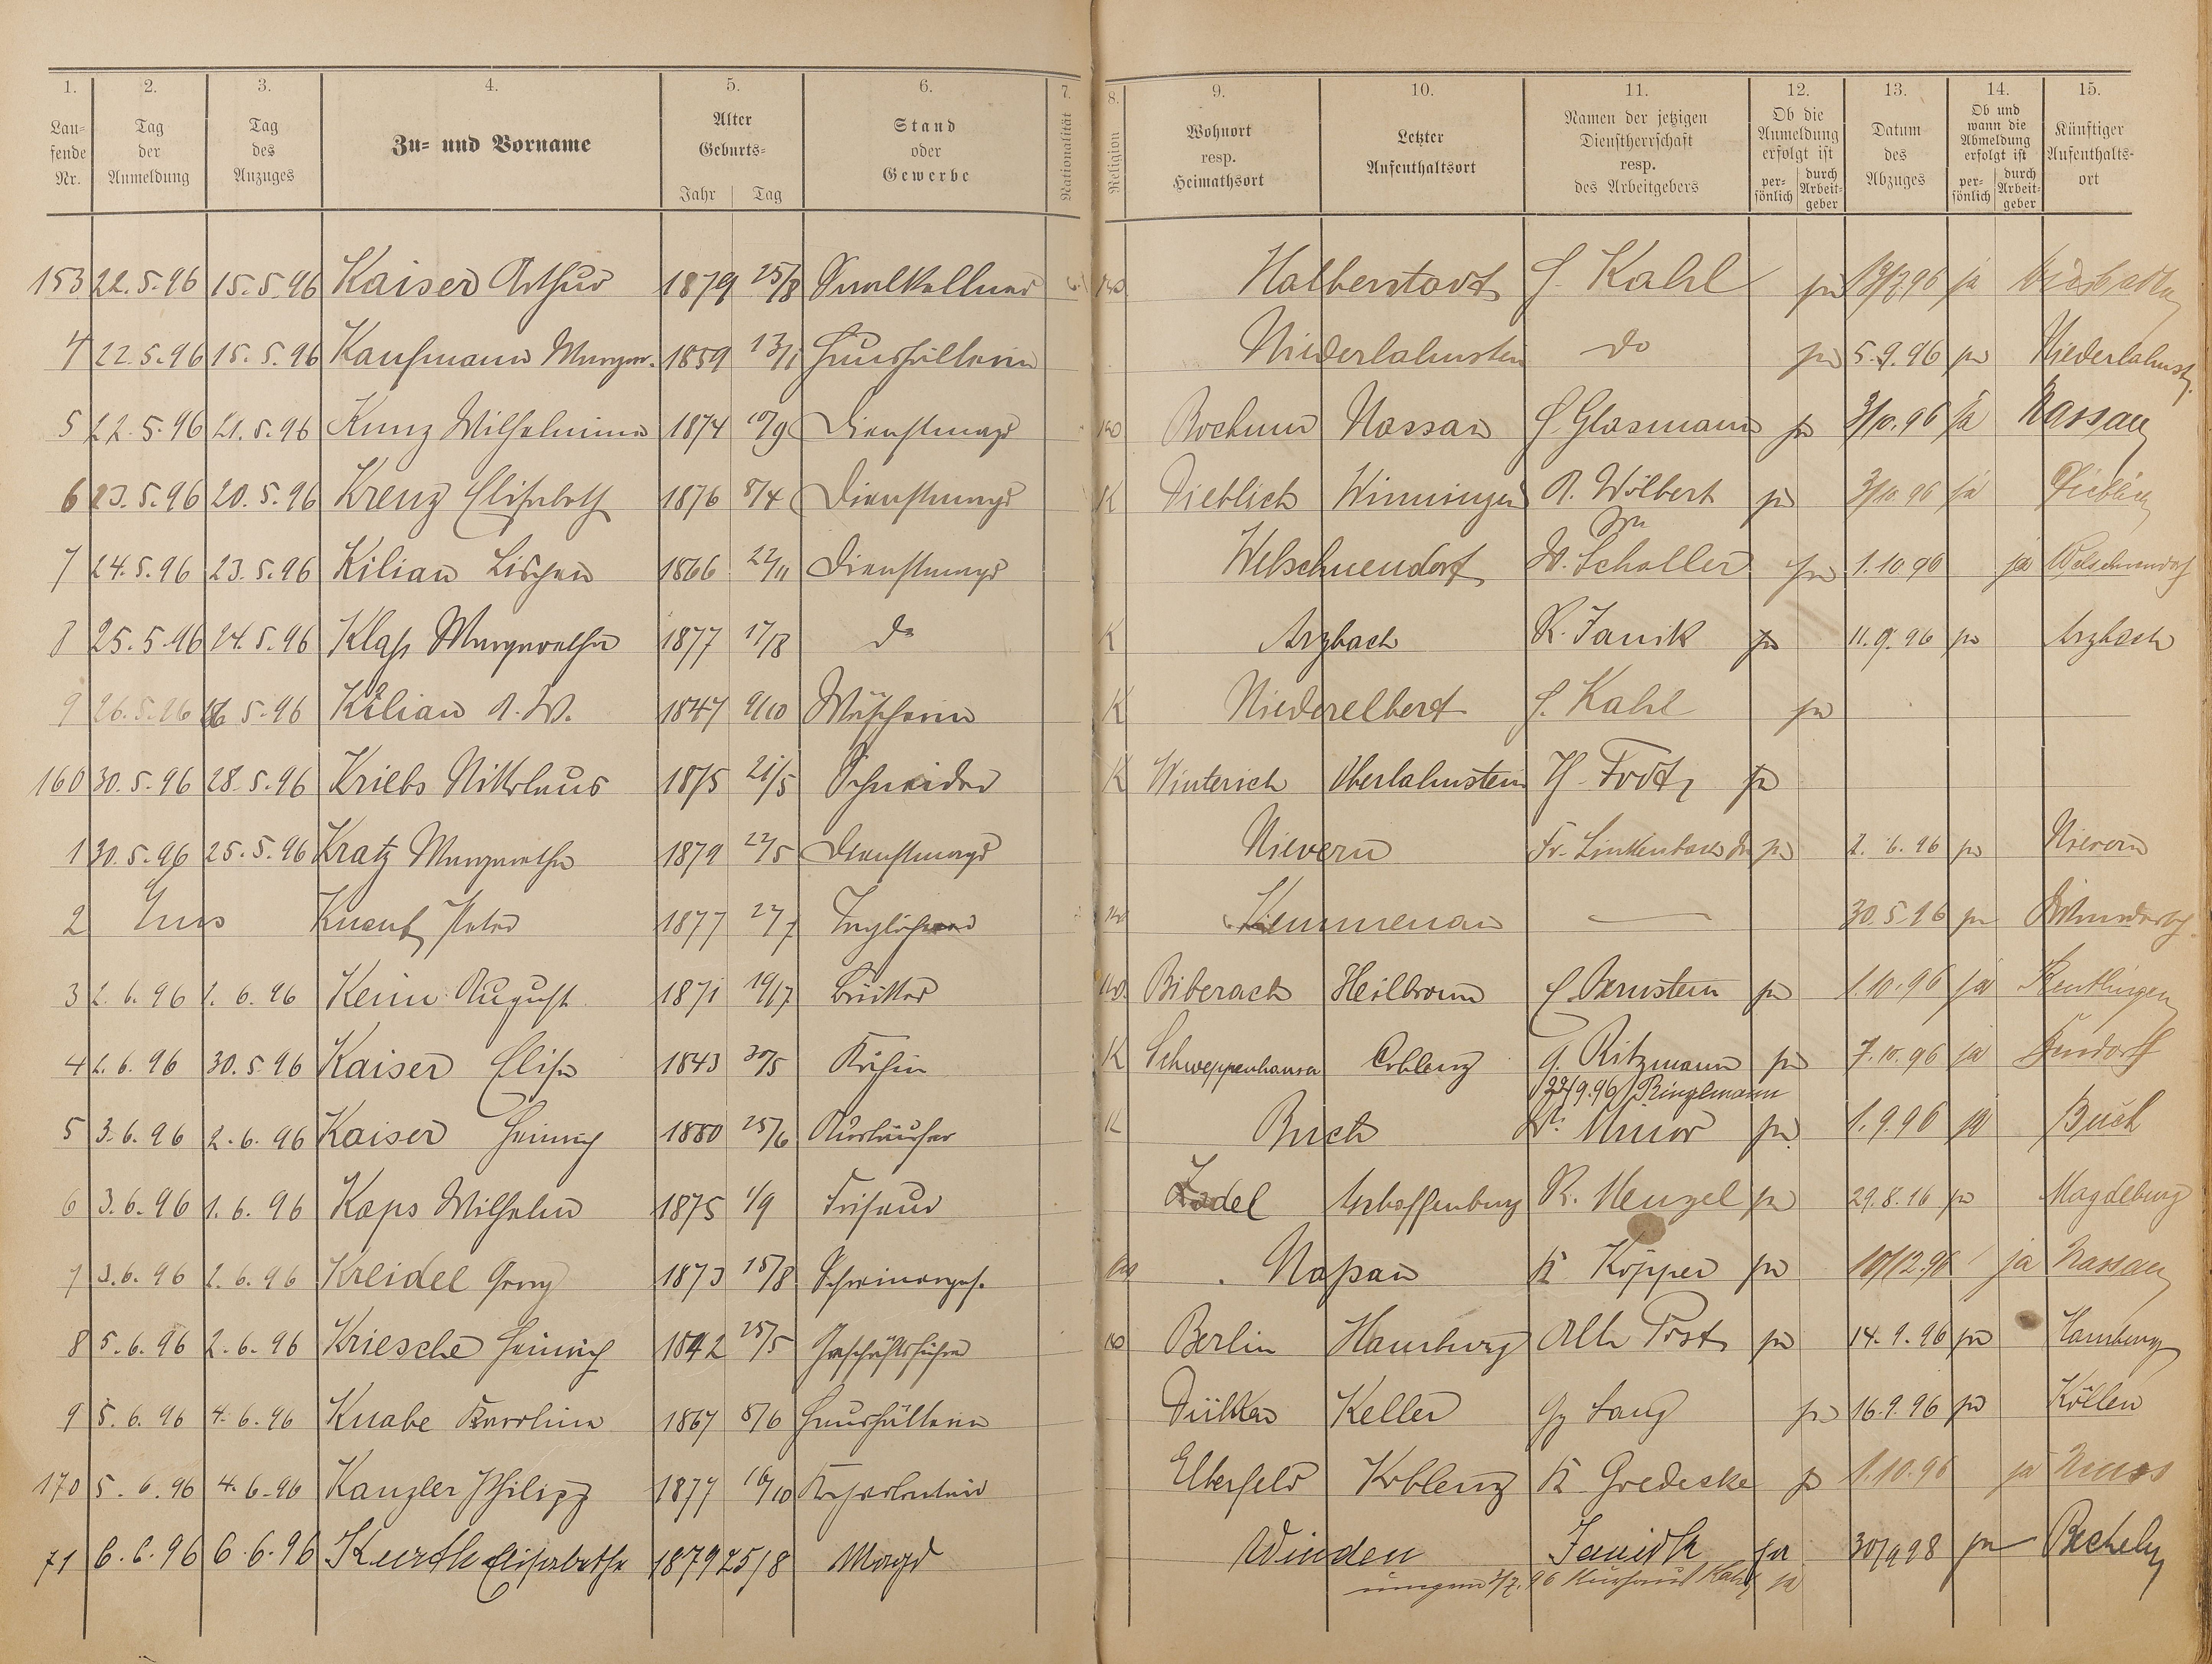 1. 2. 3. 4. 5. 6. 7. 8. 9. 10. 11. 12. 13. 14. 15.
Lau-
fende
Nr.
Tag
der
Anmeldung
Tag
des
Anzuges
Zu- und Vorname
Alter
Geburts-
Jahr Tag
Stand
oder
Gewerbe
Nationalität
Religion
Wohnort
resp.
Heimathsort
Letzter
Aufenthaltsort
Namen der jetzigen
Dienstherrschaft
resp.
des Arbeitgebers
Ob die
Anmeldung
erfolgt ist
per-
sönlich
durch
Arbeit-
geber
Datum
des
Abzuges
Ob und
wann die
Abmeldung
erfolgt ist
per-
sönlich
durch
Arbeit-
geber
Künftiger
Aufenthalts-
ort
153 22.5.96 15.5.96 Kaiser Arthur 1879 25/8 Saalkellner Halberstadt C. Kahl ja 19/7 96 ja Wiesbaden
4 22.5.96 15.5.96 Kaufmann Margar. 1859 13/1 Haushälterin Niederlahnstein do ja 5.9.96 ja Niederlahnst.
5 22.5.96 21.5.96 Kunz Wilhelmina 1874 10/9 Dienstmagd Bochum Nassau C. Glasmann ja 3/10.96 ja Nassau
6 23.5.96 20.5.96 Krenz Elisabeth 1876 8/4 Dienstmagd K Dieblich Winningen A. Wilbert ja 3/10 96 ja Dieblich
7 24.5.96 23.5.96 Kilian Lischen 1866 22/11 Dienstmagd Welschneudorf W. Scholler ja 1.10.96 ja Welschneudorf
8 25.5.96 24.5.96 Klaß Margaretha 1877 17/8 do K Arzbach K. Janik ja 11.9.96 ja Arzbach
9 26.5.96 26.5.96 Kilian A. W. 1847 9/10 Wäscherin K Niederelbert C. Kahl ja
160 30.5.96 28.5.96 Kriebs Nikolaus 1875 21/5 Schneider K Winterich Oberlahnstein ja
1 30.5.96 25.5.96 Kratz Margaretha 1879 22/5 Dienstmagd Nievern Fr. Linkenbach ja 2.6.96 ja Nievern
2 Ems Knauf Peter 1877 27/7 Taglöhner Kemmenau — 30.5.96 ja
3 2.6.96 2.6.96 Keim August 1871 19/7 Biberach Heilbronn C Bernstein ja 1.10.96 ja Reutlingen
4 2.6.96 30.5.96 Kaiser Elise 1843 30/5 Köchin K Schweppenhausen Coblenz G. Ritzmann ja 7.10.96 ja Bendorf
22/9.96 Ringelmann
5 3.6.96 2.6.96 Kaiser Heinrich 1880 25/6 Ausläufer K Buch W. Minor ja 1.9.96 ja Buch
6 3.6.96 1.6.96 Kaps Wilhelm 1875 1/9 Friseur Zadel Aschaffenburg R. Menzel ja 29.8.96 ja Magdeburg
7 3.6.96 2.6.96 Kreidel Georg 1873 15/8 Schreinergeh. Naßau K Köpper ja 10/12.96 ja Nassau
8 5.6.96 2.6.96 Kriesche Heinrich 1842 25/5 Geschäftsführer Berlin Hamburg Alte Post ja 14.9.96 ja Hamburg
9 5.6.96 4.6.96 Knabe Karoline 1867 8/6 Haushälterin Dülken Keller Gg Lang ja 16.9.96 ja Köllen
170 5.6.96 4.6.96 Kanzler Philipp 1877 16/10 Elberfeld Koblenz K Gredecke ja 1.10.96 ja Neuss
71 6.6.96 6.6.96 Kurth Elisabetha 1879 25/8 Magd Winden Janick ja 30/9 98 ja Becheln
7.96 Kurhaus Kahl ja